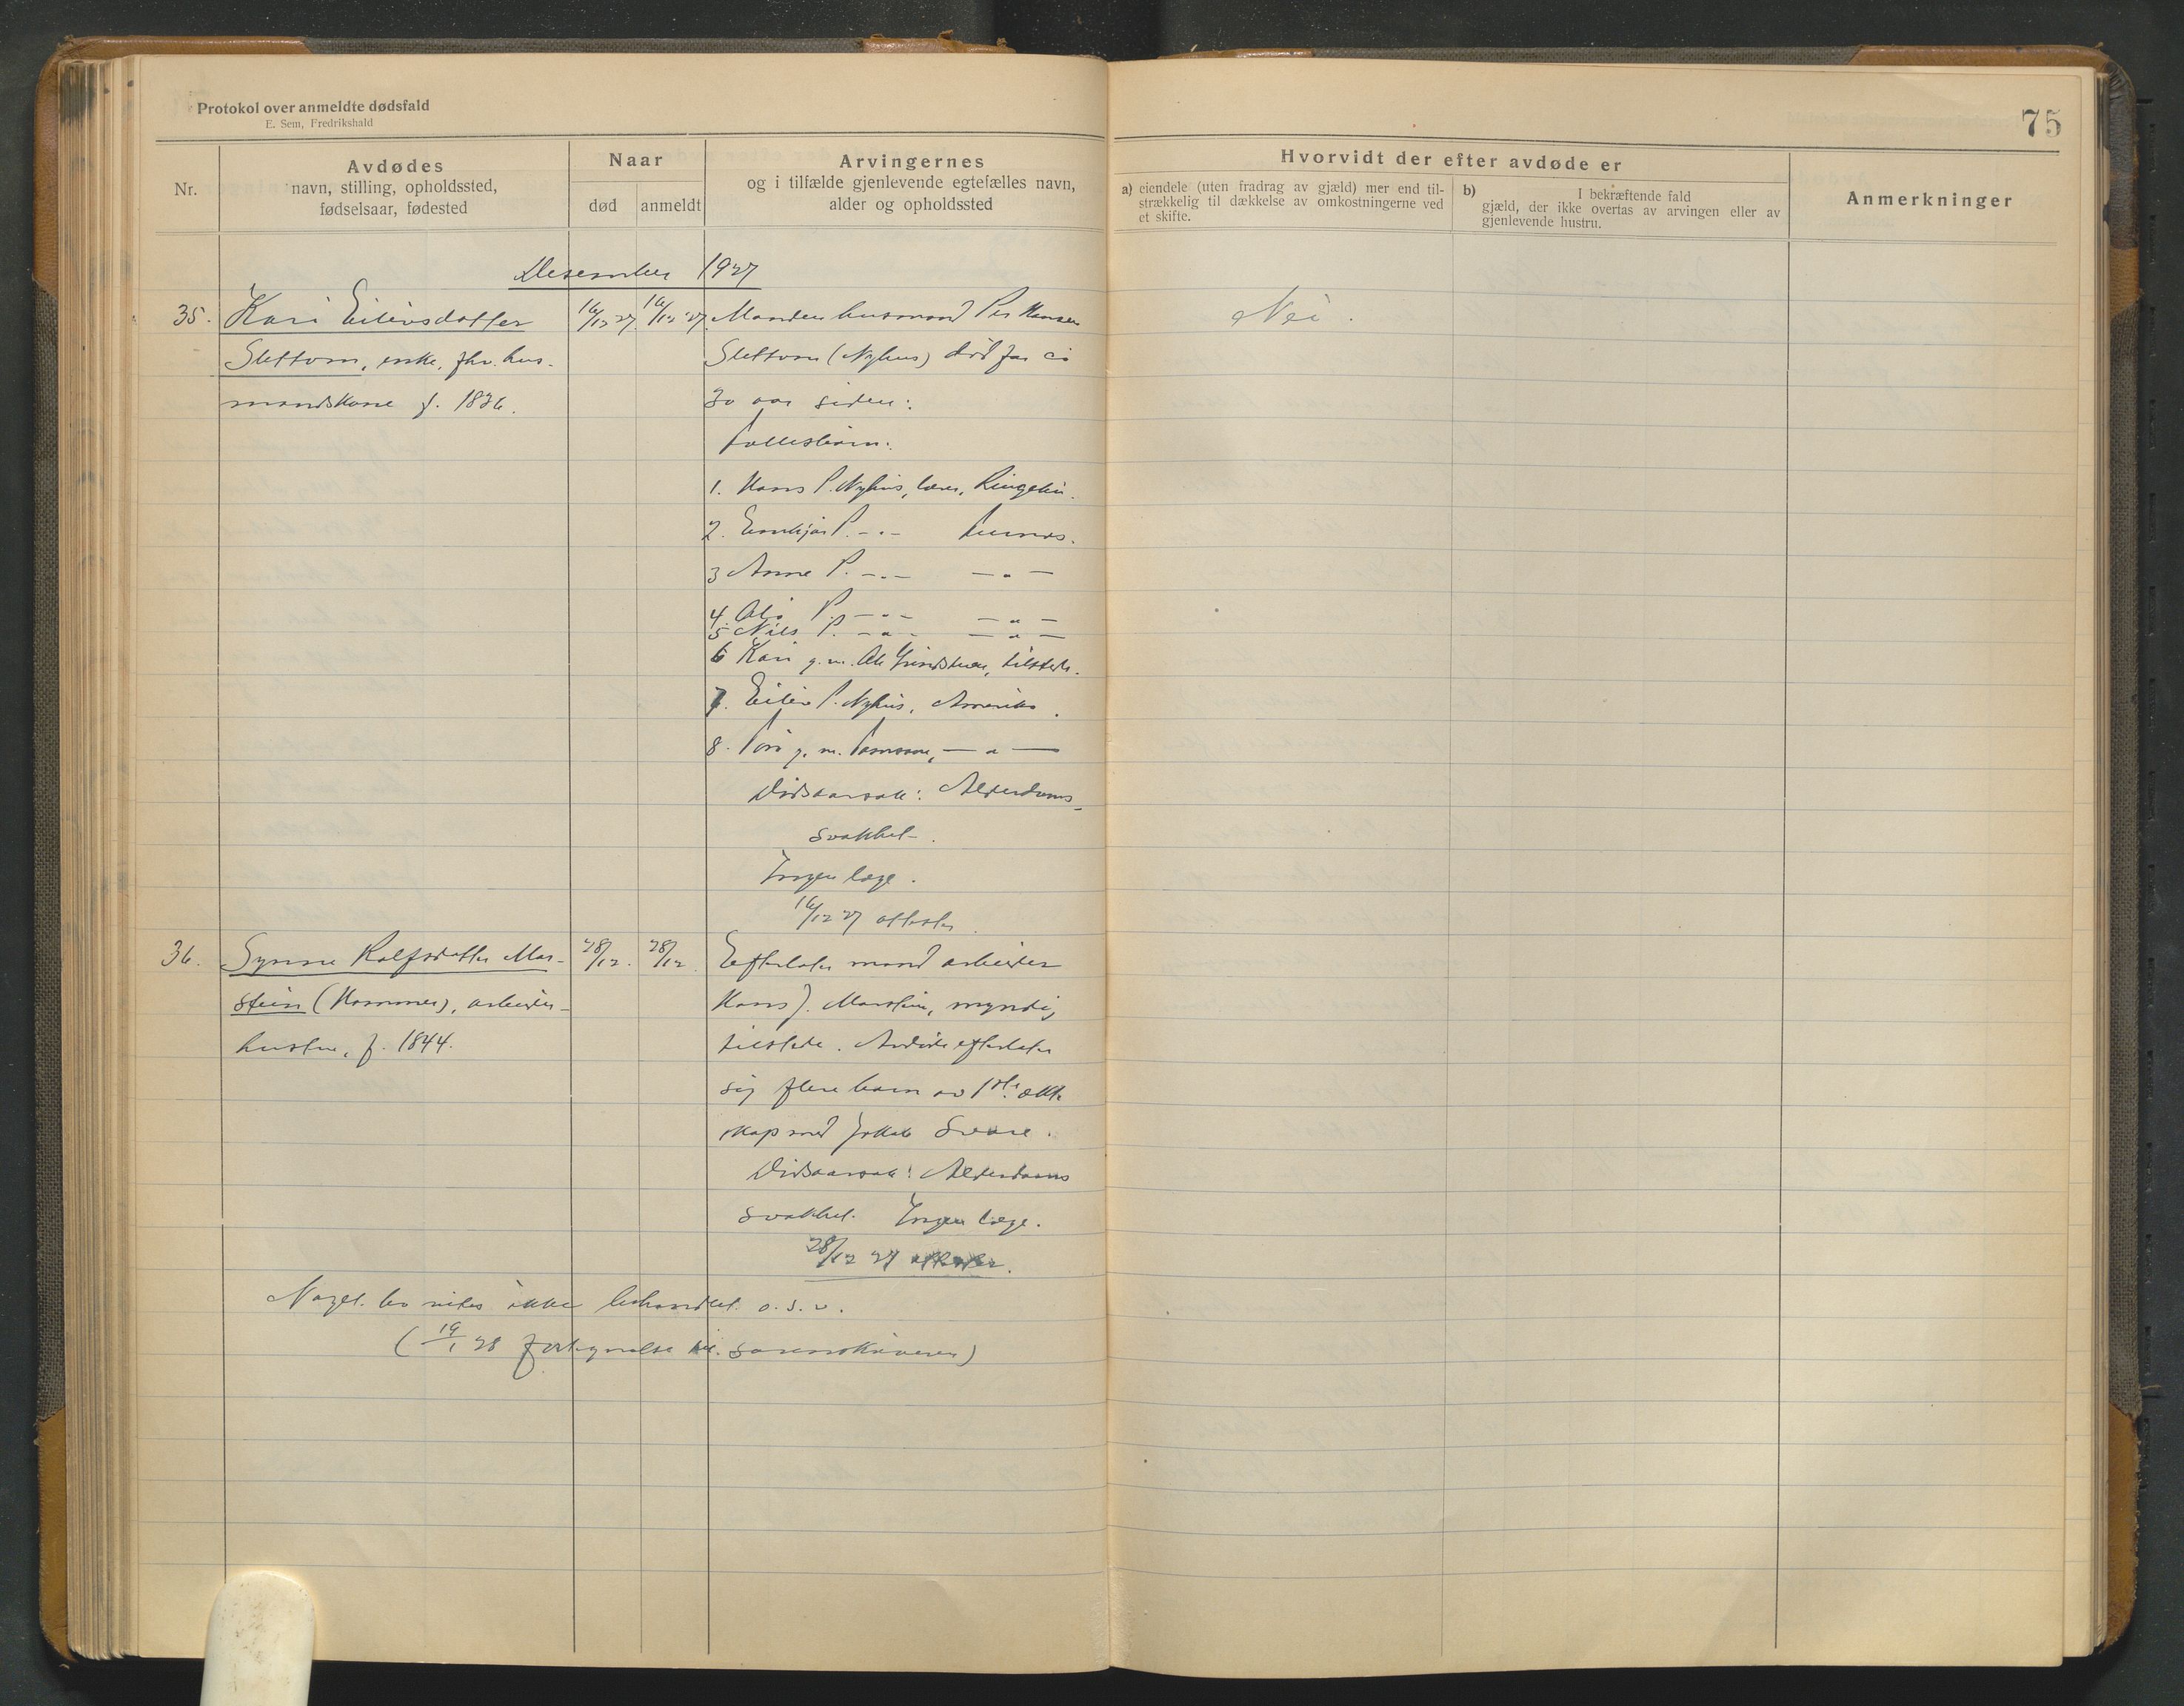 Protokol over anmeldte dødsfald
E. Sem, Fredrikshald
75
Nr.
Avdødes
navn, stilling, opholdssted,
fødselsaar, fødested
Naar
død
anmeldt
Arvingernes
og i tilfælde gjenlevende egtefælles navn,
alder og opholdssted
Hvorvidt der efter avdøde er
a) eiendele (uten fradrag av gjæld) mer end til-
strækkelig til dækkelse av omkostningerne ved
et skifte.
b) I bekræftende fald
gjæld, der ikke overtas av arvingen eller av
gjenlevende hustru.
Anmerkninger
Desember 1927
35. Kari Eilivsdatter 16/12 27. 16/12 27. Manden husmand Per Hansen Nei.
Slettom, enke, fhv. hus- Slettom (Nyhus) død for ca
mandskone f. 1836. 30 aar siden:
Fællesbarn:
1. Hans P. Nyhus, lærer, Ringebu.
2. P. -"-
3 Anne P. -"- -"-
4. P. -"- -"-
5 Nils P. -"- -"-
6 Kari g. m. Ole tilstede.
7. Eiliv P. Nyhus, Amerika.
8. g. m. -"-
Dødsaarsak: Alderdoms-
svakhet.
Ingen læge.
16/12 27 attester.
36. Synne Rolfsdatter Mar- 28/12. 28/12. Efterlater mand arbeider
stein (Hammer), arbeider- Hans J. Marstein, myndig
hustru, f. 1844. tilstede. Avdøde efterlater
sig flere barn av 1ste ekte
skap med Jakob
Dødsaarsak: Alderdoms
svakhet. Ingen læge.
28/12 27 attester.
Noget bo vites ikke behandlet o.s.v.
(19/1 28 fortegnelse til sorenskriveren)